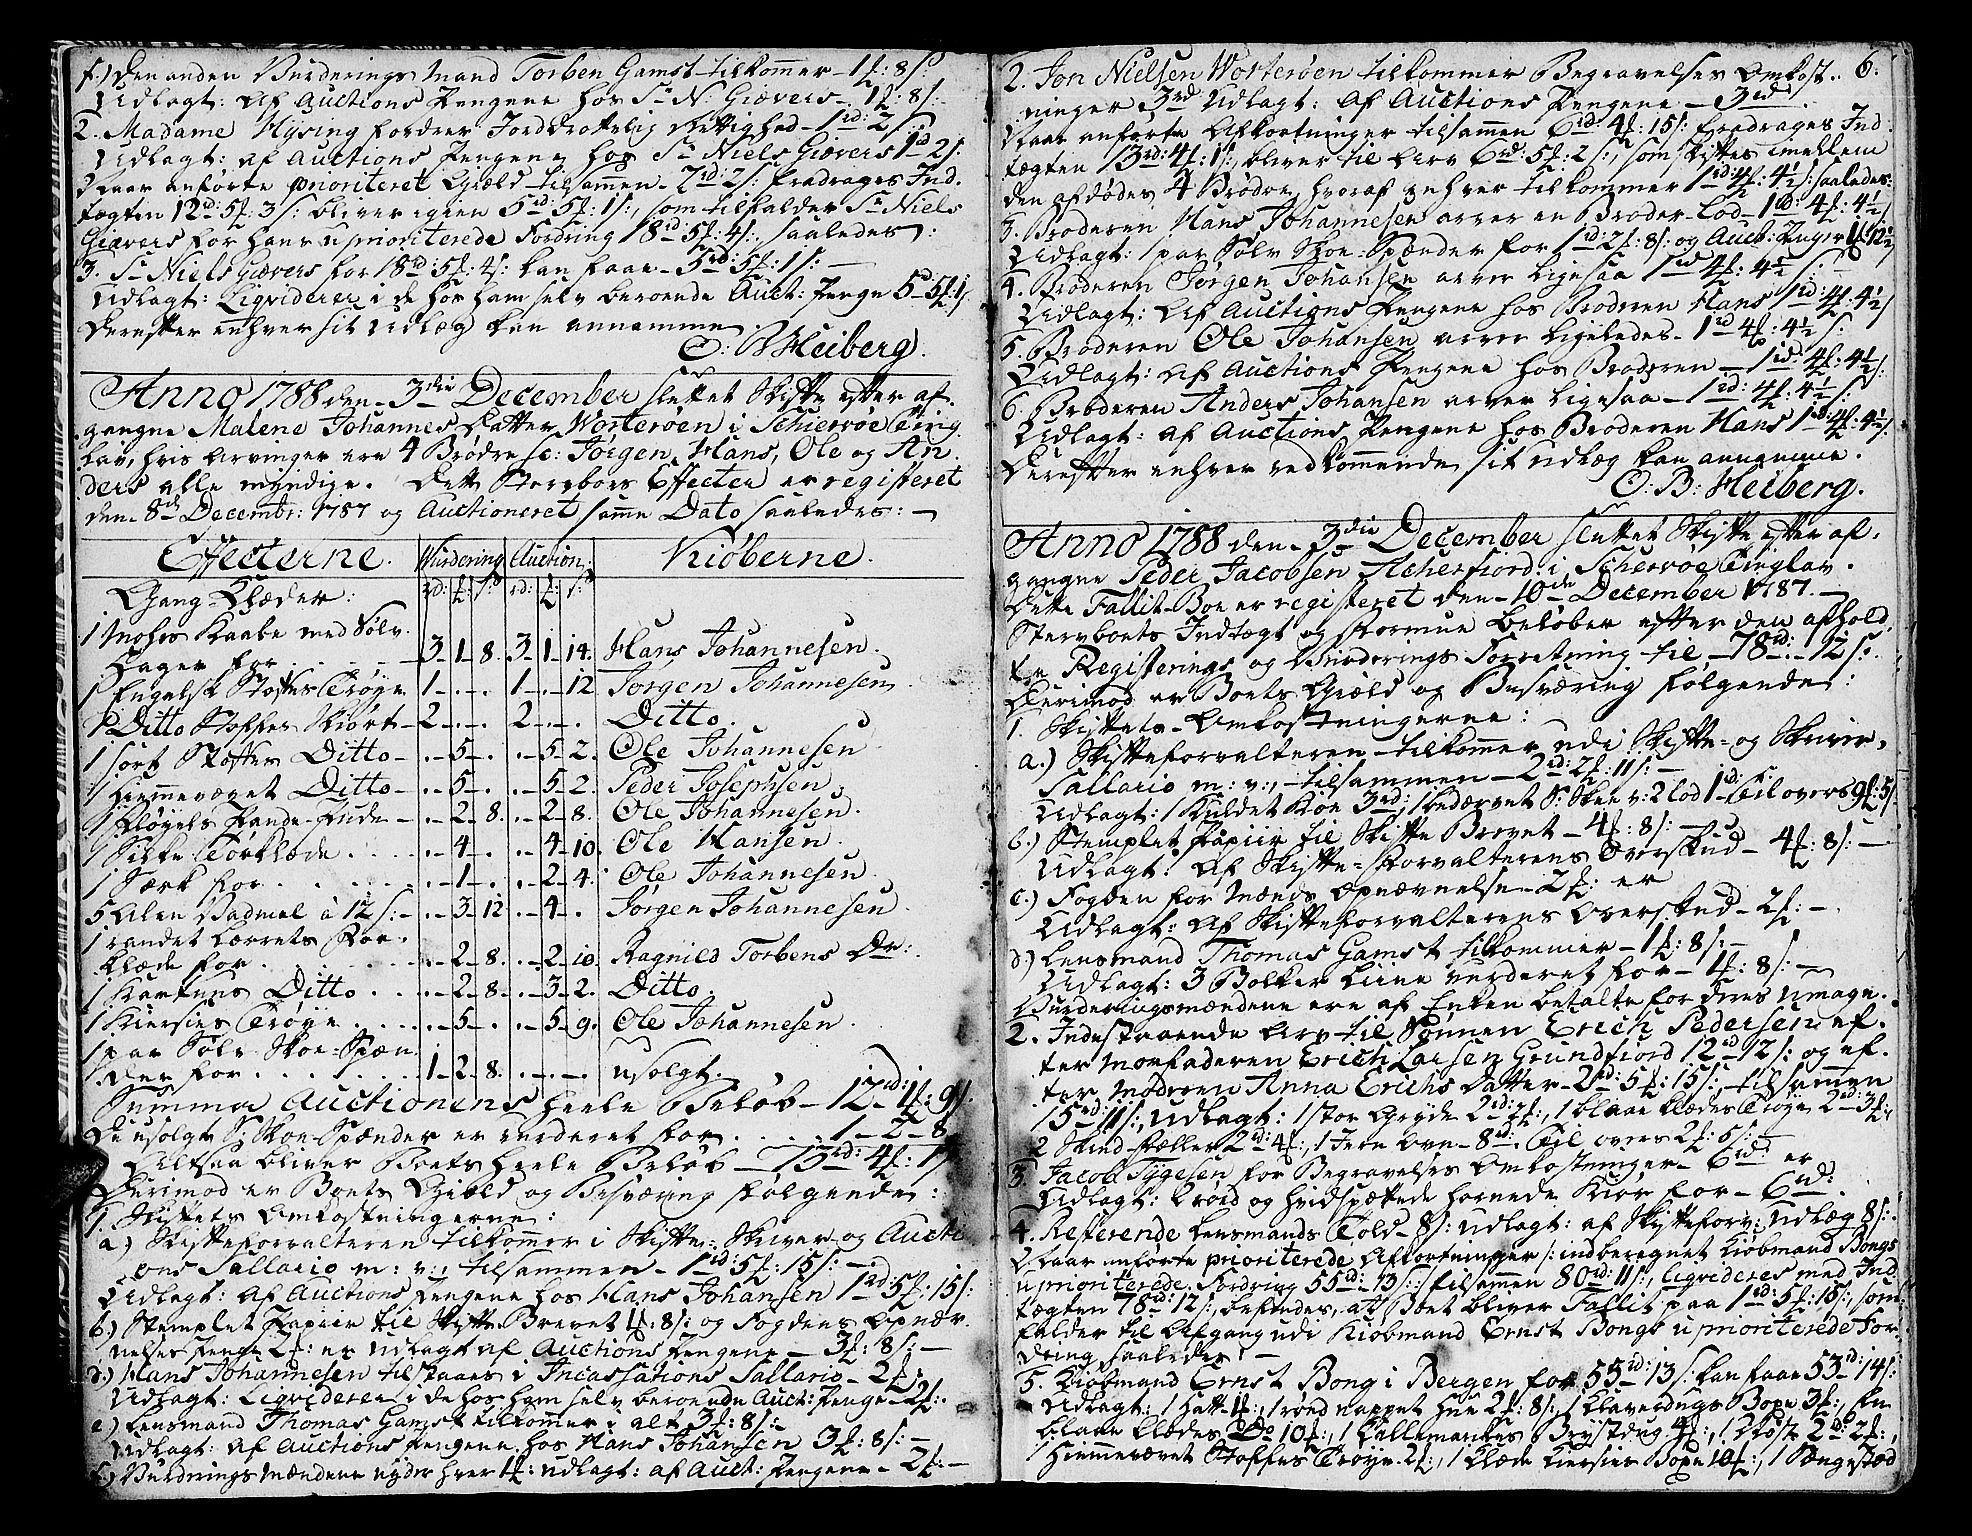 f.) Den anden Vurderings Mand Torben Gamst tilkommer - 1 f: 8 s:
Udlagt: Af Auctions Pengene hos Sr. N: Giævers - 1 f: 8 s:
2. Madame Hysing fordrer Jorddrottelig Rettighed - 1 rd: 2 s:
Udlagt: af Auctions Pengene hos Sr. Niels Giævers 1 rd 2 s:
Naar anførte prioriteret Giæld tilsammen - 7 rd: 2 s: fradrages Ind-
tægten 12 rd: 5 f: 3 s: bliver igien 5 rd: 5 f: 1 s:, som tilfalder Sr. Niels
Giævers for hans uprioriterede Fordring 18 rd: 5 f: 4 s:, saaledes:
3. Sr. Niels Giævers for 18 rd: 5 f: 4 s: kan faae - 5 rd: 5 f: 1 s: -
Udlagt: Liqviderer i de hos ham selv beroende Auct: Penge 5 - 5 f: 1 s.
Derefter enhver sit Udlæg kan annamme.
O: B: Heiberg.
Anno 1788 den 3die December sluttet Skifte efter af-
gangne Malene Johannes Datter Worterøen i Schiervøe Ting-
lav, hvis Arvinger ere 4 Brødre sc: Jørgen, Hans, Ole og An-
ders alle myndige. Dette Stervboes Effecter er registeret
den 8de Decembr: 1787 og Auctioneret samme Dato saaledes: -
Effecterne. Wurdering Auction. Kiøberne.
Gang-Klæder: rd: f: s: rd: f: s:
1 Mohrs Kaabe med Sølv
Hager for . . . 3 - 1 - 8. 3 - 1 - 14. Hans Johannesen.
1 Engelsk Stoffes Trøye 1 - . - . 1 - . - 12 Jørgen Johannesen
1 Ditto Stoffes Skiørt - 2 - . - . 2 - . - . Ditto.
1 sort Stoffes Ditto - . - 5 - . . - 5 - 2. Ole Johannesen
1 Hiemmevævet Ditto - . - 5 - . . - 5 - 2. Peder Josephsen
1 Fløyels Pande-Hude - . - 2 - 8. . - 2 - 8. Ole Johannesen
1 Silke Tørklæde . . . - 4 - . . - 4 - 10. Ole Hansen.
1 Særk for . . . . - 1 - . . - 2 - 4. Ole Johannesen.
5 Alen Vadmel à 12 s: - . - 3 - 12 . - 4 - . Jørgen Johannesen
1 randet Lærrets For-
klæde for . . . - 2 - 8. . - 2 - 10. Ragnild Torbens Dr:
1 Kartuns Ditto . . . - 2 - 8. . - 3 - 2. Ditto.
1 Kiersies Trøye . . . - 5 - . . - 5 - 9. Ole Johannesen.
1 par Sølv Skoe-Spæn-
der for . . . 1 - 2 - 8. . - . - . usolgt.
Summa Auctionens heele Beløb - 12 rd: 1 f: 9 s.
De usolgt S: Skoe-Spænder er vurderet for . . . 1 - 2 - 8
Altsaa bliver Boets heele Beløb - 13 rd: 4 f: 1 s
Derimod er Boets Giæld og Besværing følgende:
1. Skiftets Omkostningerne:
a.) Skifteforvalteren tilkommer i Skifte- Skriver- og Aucti-
ons Sallario m: v:, tilsammen - 1 rd: 5 f: 15 s: -
Udlagt: Af Auctions Pengene hos Hans Johansen 1 rd: 5 f: 15 s:
b.) Stemplet Papiir til Skifte-Brevet 1 f: 8 s: og Fogdens Opnæv-
nelses Penge 2 f: er Udlagt af Auctions Pengene - 3 f: 8 s: -
d.) Hans Johannesen tilstaaes i Incassations Sallario - 2 f:
Udlagt: Liqviderer i de hos ham selv beroende Auct: Penge - 2 f:
e.) Lensmand Thomas Gamst tilkommer i alt 3 f: 8 s:
Udlagt: Af Auctions Pengene hos Hans Johansen 3 f: 8 s: -
f.) Vurdrings Mændene nyder hver 1 f: udlagt: af Auct: Pengene - 2 f: -
6.
2. Jon Nielsen Worterøen tilkommer Begravelses Omkost-
ninger 3 rd Udlagt: Af Auctions Pengene - 3 rd:
Naar anførte Afkortninger tilsammen 6 rd: 4 f: 15 s: fradrages Ind-
tægten 13 rd: 4 f: 1 s:, bliver til Arv 6 rd: 5 f: 2 s:, som skiftes imellem
den afdødes 4 Brødre, hvoraf enhver tilkommer 1 rd: 4 f: 4½ s: saaledes:
3. Broderen Hans Johannesen arver en Broder-Lod - 1 rd: 4 f: 4½
Udlagt: 1 par Sølv Skoe-Spænder for 1 rd: 2 f: 8 s: og Auct: Penger 1 f 12½
4. Broderen Jørgen Johansen arver ligesaa 1 rd 4 f: 4½ s: -
Udlagt: Af Auctions Pengene hos Broderen Hans 1 rd: 4 f: 4½ s
5. Broderen Ole Johansen arver ligeledes - 1 rd 4 f: 4½ s:
Udlagt: Af Auctions Pengene hos Broderen - 1 rd: 4 f: 4½ s:
6. Broderen Anders Johansen arver ligesaa - 1 rd: 4 f: 4½ s:
Udlagt: af Auctions Pengene hos Broderen Hans 1 rd: 4 f: 4½ s:
Derefter enhver vedkommende sit udlæg kan annamme.
O: B: Heiberg.
Anno 1788 den 3die December sluttet Skifte efter af-
gangne Peder Jacobsen Acherfiord i Schervøe Tinglav.
Dette Fallit-Boe er registeret den 10de December 1787. -
Stervboets Indtægt og Formue beløber efter den afhold-
te Registerings og Vurderings Forretning til - 78 rd: - 12 s:
Derimod er Boets Giæld og Besværing følgende:
1. Skiftets Omkostningerne:
a.) Skifteforvalteren tilkommer udi Skifte- og Skriver-
Sallario m: v:, tilsammen - 2 rd: 2 f: 11 s: -
Udlagt: 1 Kuldet Koe 3 rd:, 1 bedærvet S: Skee v: 2 Lod 1 f: Til overs 9 f: 5 s:
b.) Stemplet Papiir til Skifte Brevet - 4 f: 8 s: -
Udlagt: Af Skifte-Forvalterens Overskud - 4 f: 8 s: -
c.) Fogden for Mænds Opnævnelse - 2 f: er
Udlagt: Af Skifteforvalterens Overskud - 2 f: -
d.) Lensmand Thomas Gamst tilkommer - 1 f: 8 s: -
Udlagt: 3 Bolker Liine vurderet for - 1 f: 8 s: -
Vurderingsmændene ere af Enken betalte for deres Umage.
2. Indestaaende Arv til Sønnen Erich Pedersen ef-
ter Morfaderen Erich Larsen Grundfiord 12 rd 12 s: og ef-
ter Moderen Anna Erichs Datter - 2 rd: 5 f: 15 s:, tilsammen
15 rd: 11 s:, Udlagt: 1 stor Gryde 2 rd: 2 f:, 1 blaae Klædes Trøye 2 rd: 3 f:,
2 Skind-Fæller 2 rd: 4 f:, 1 Jern Ovn - 8 rd:. Til overs 2 f: 5 s: -
3. Jacob Tygesen for Begravelses Omkostninger - 6 rd: er
Udlagt: 1 rød og hvidspættede hornede Kiør for - 6 rd:
4. Refterende Lensmands Told - 8 s: udlagt: af Skifteforv: Udlæg 8 s: -
Naar anførte prioriterede Afkortninger /: indberegnet Kiøbmand Bongs
uprioriterede Fordring 55 rd: 13 s: :/ tilsammen 80 rd: 11 s:, liqvideres med Ind-
tægten 78 rd: 12 s:, befindes, at Boet bliver Fallit paa 1 rd: 5 f: 15 s:, som
falder til Afgang udi Kiøbmand Ernst Bongs uprioriterede For-
dring saaledes: -
5. Kiøbmand Ernst Bong i Bergen for 55 rd: 13 s: kan faae 53 rd: 14 s:
Udlagt: 1 Hatt 1 f:, 1 rød nappet Hue 2 f: 8 s:, 1 Klaverdugs Boxe 3 f:, En
blaae Klædes Do 10 f:, 1 Kallemankes Brystdug 4 f:, 1 Kiost 2 rd: 2 f:,
1 Hiemmevævet Stoffes Trøye 2 f:, 1 Klæde Kiersies Boxe 10 f:, 1 Sængestæd